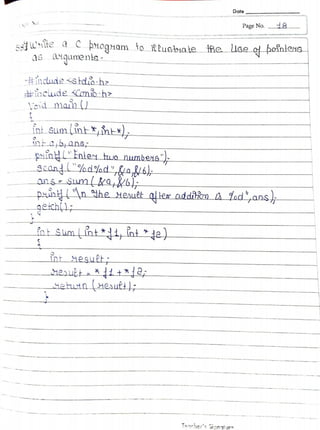 Date
Page No. 18
Write a C program to illustrate the Use of pointers
as arguments.
#include <stdio.h>
#include <conio.h>
Void main()
{
int sum(int *, int *);
int a, b, ans;
printf("Enter two numbers");
scanf("%d%d", &a, &b);
ans = sum(&a, &b);
printf("\n The result after addition is %d", ans);
getch();
}
int sum(int *f1, int *f2)
{
int result;
result = *f1 + *f2;
return (result);
}
Teacher's Signature